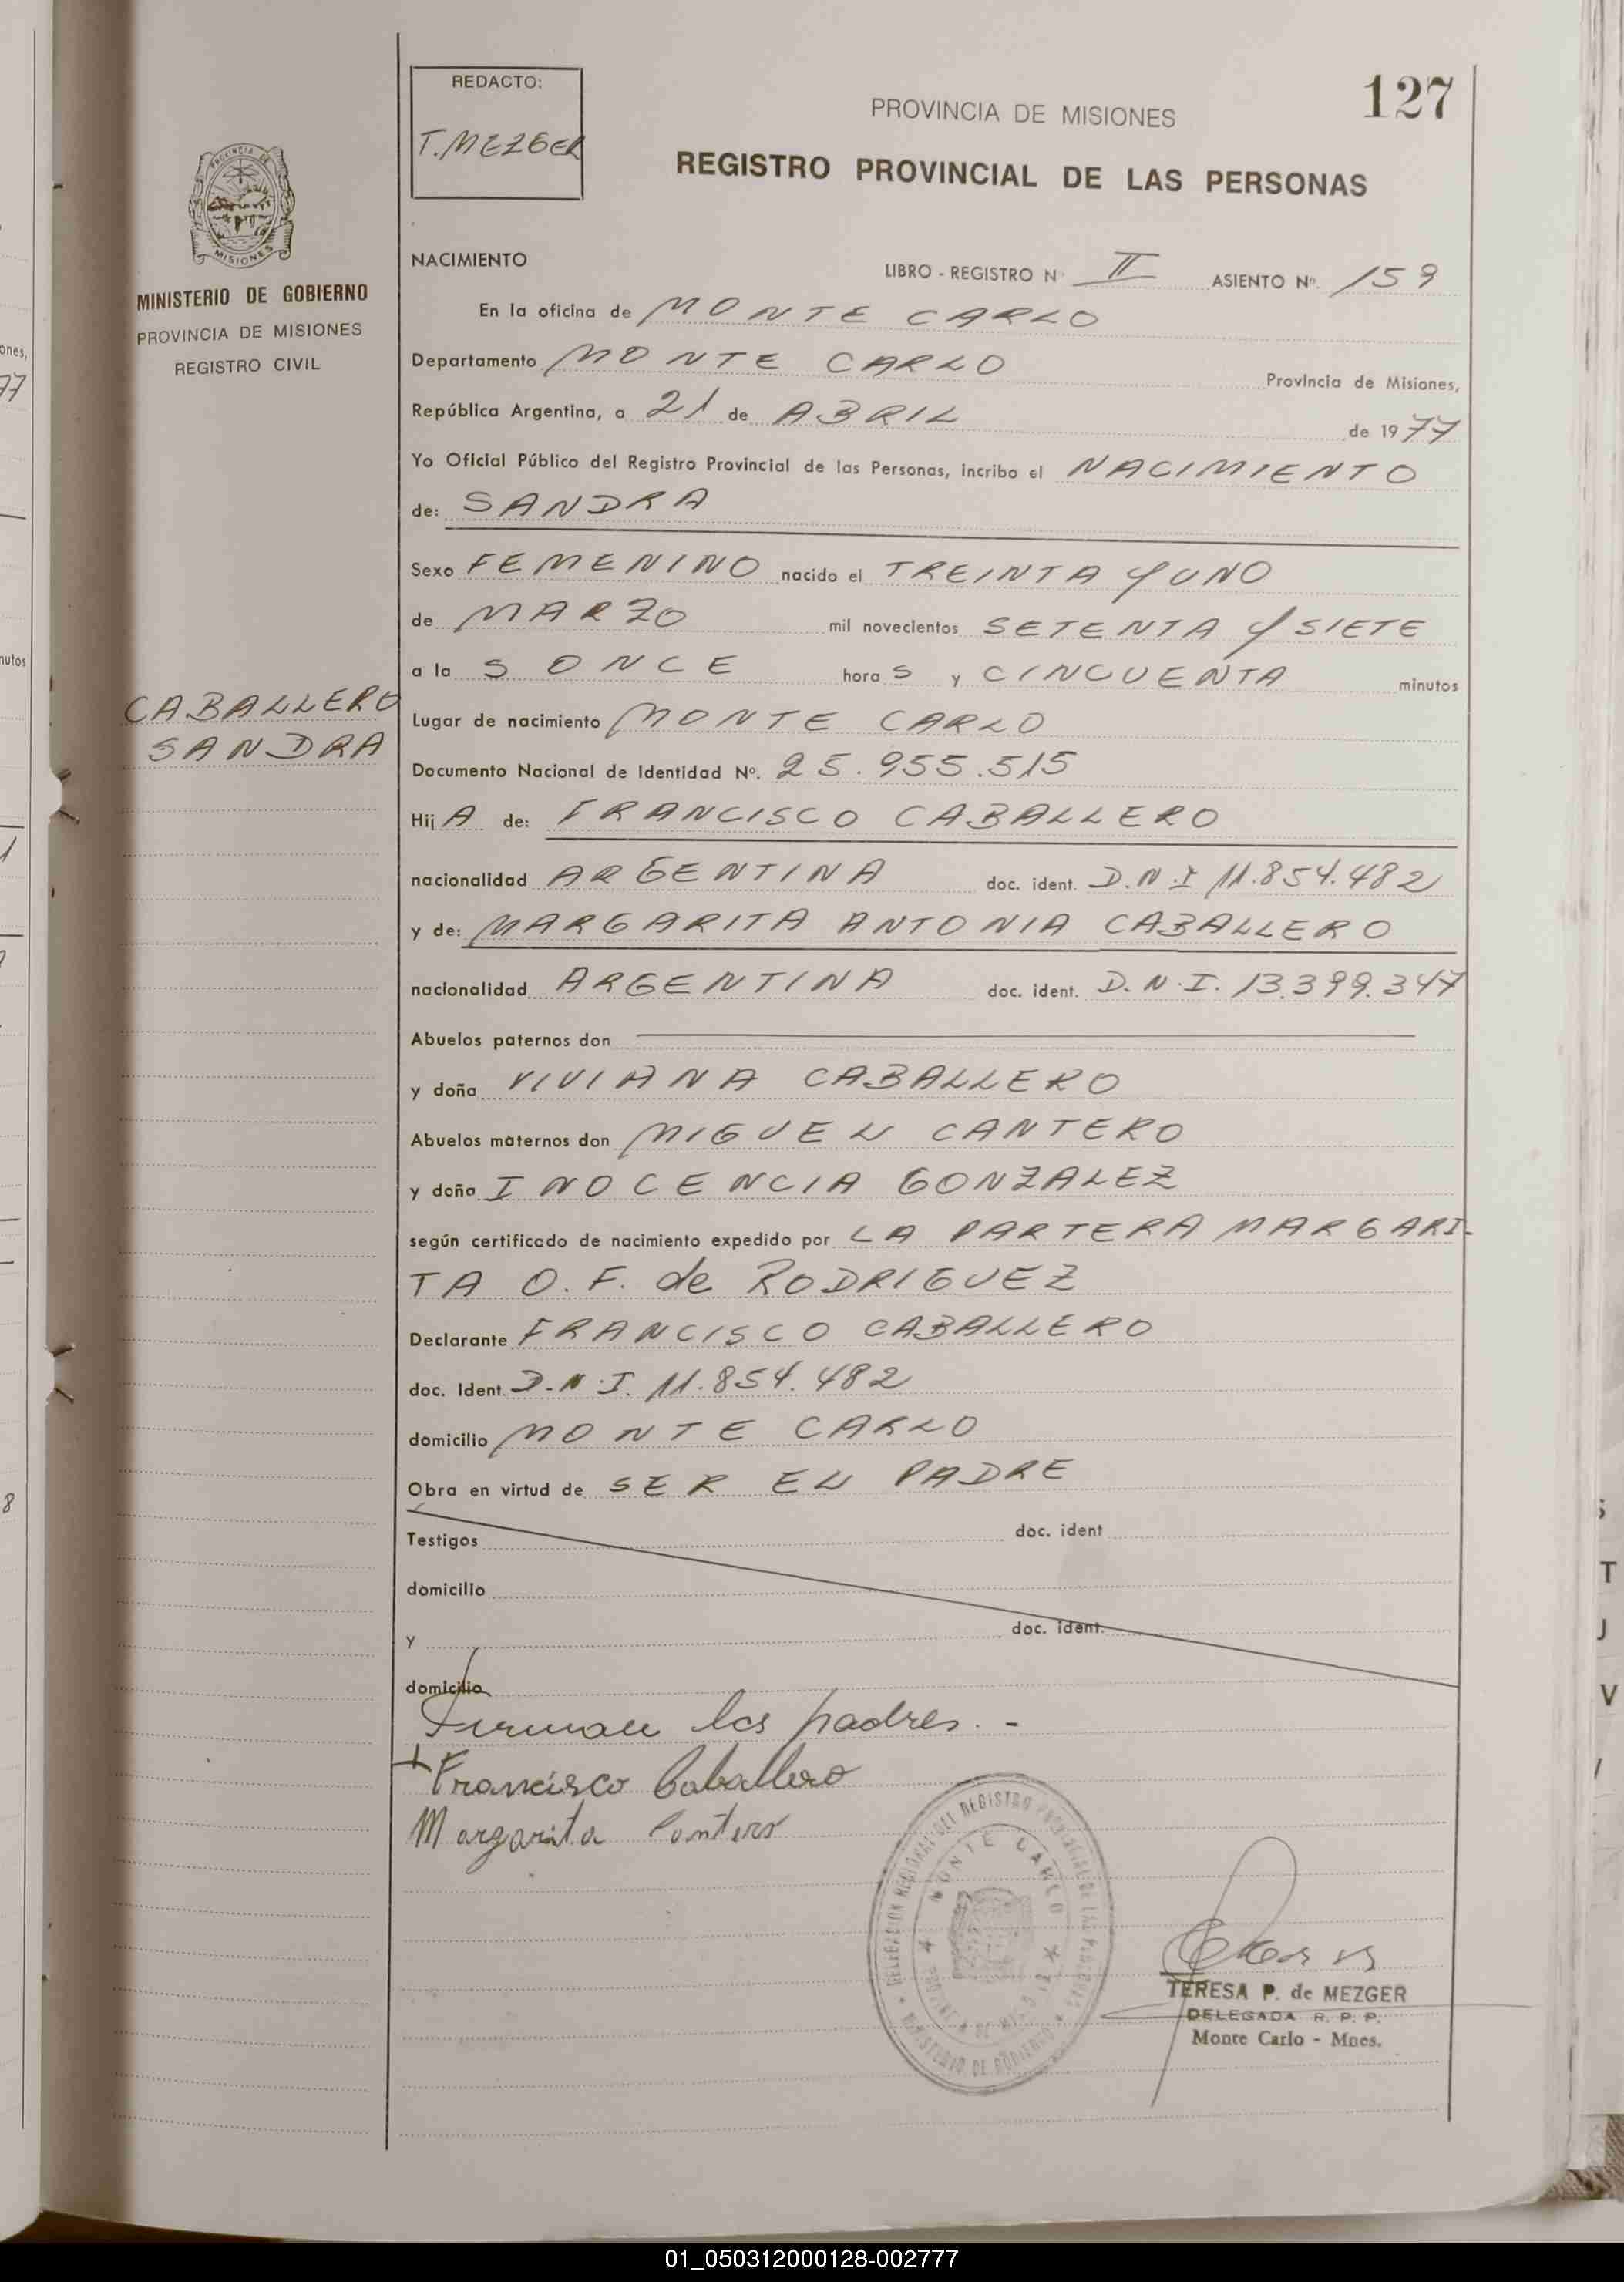 REDACTO:
T. MEZGER
PROVINCIA DE MISIONES
127
REGISTRO PROVINCIAL DE LAS PERSONAS
PROVINCIA DE
MISIONES
MINISTERIO DE GOBIERNO
PROVINCIA DE MISIONES
REGISTRO CIVIL
NACIMIENTO
LIBRO - REGISTRO N· II ASIENTO Nº. 159
En la oficina de MONTE CARLO
Departamento MONTE CARLO Provincia de Misiones,
República Argentina, a 21 de ABRIL de 1977
Yo Oficial Público del Registro Provincial de las Personas, incribo el NACIMIENTO
de: SANDRA
Sexo FEMENINO nacido el TREINTA Y UNO
de MARZO mil novecientos SETENTA Y SIETE
a la S ONCE hora S y CINCUENTA minutos
CABALLERO
SANDRA
Lugar de nacimiento MONTE CARLO
Documento Nacional de Identidad Nº. 25.955.515
Hij A de: FRANCISCO CABALLERO
nacionalidad ARGENTINA doc. ident. D.N.I 11.854.482
y de: MARGARITA ANTONIA CABALLERO
nacionalidad ARGENTINA doc. ident. D.N.I. 13.399.347
Abuelos paternos don
y doña VIVIANA CABALLERO
Abuelos maternos don MIGUEL CANTERO
y doña INOCENCIA GONZALEZ
según certificado de nacimiento expedido por LA PARTERA MARGARI-
TA O. F. de RODRIGUEZ
Declarante FRANCISCO CABALLERO
doc. Ident. D.N.I. 11.854.482
domicilio MONTE CARLO
Obra en virtud de SER EL PADRE
Testigos doc. ident
domicilio
y doc. ident.
domicilio
Firman los padres. -
Francisco Caballero
Margarita Cantero
DELEGACION REGIONAL DEL REGISTRO PROVINCIAL DE LAS PERSONAS
MONTE CARLO
MINISTERIO DE GOBIERNO
TERESA P. de MEZGER
DELEGADA R. P. P.
Monte Carlo - Mnes.
ones,
77
nutos
1
8
S
T
J
V
01_050312000128-002777